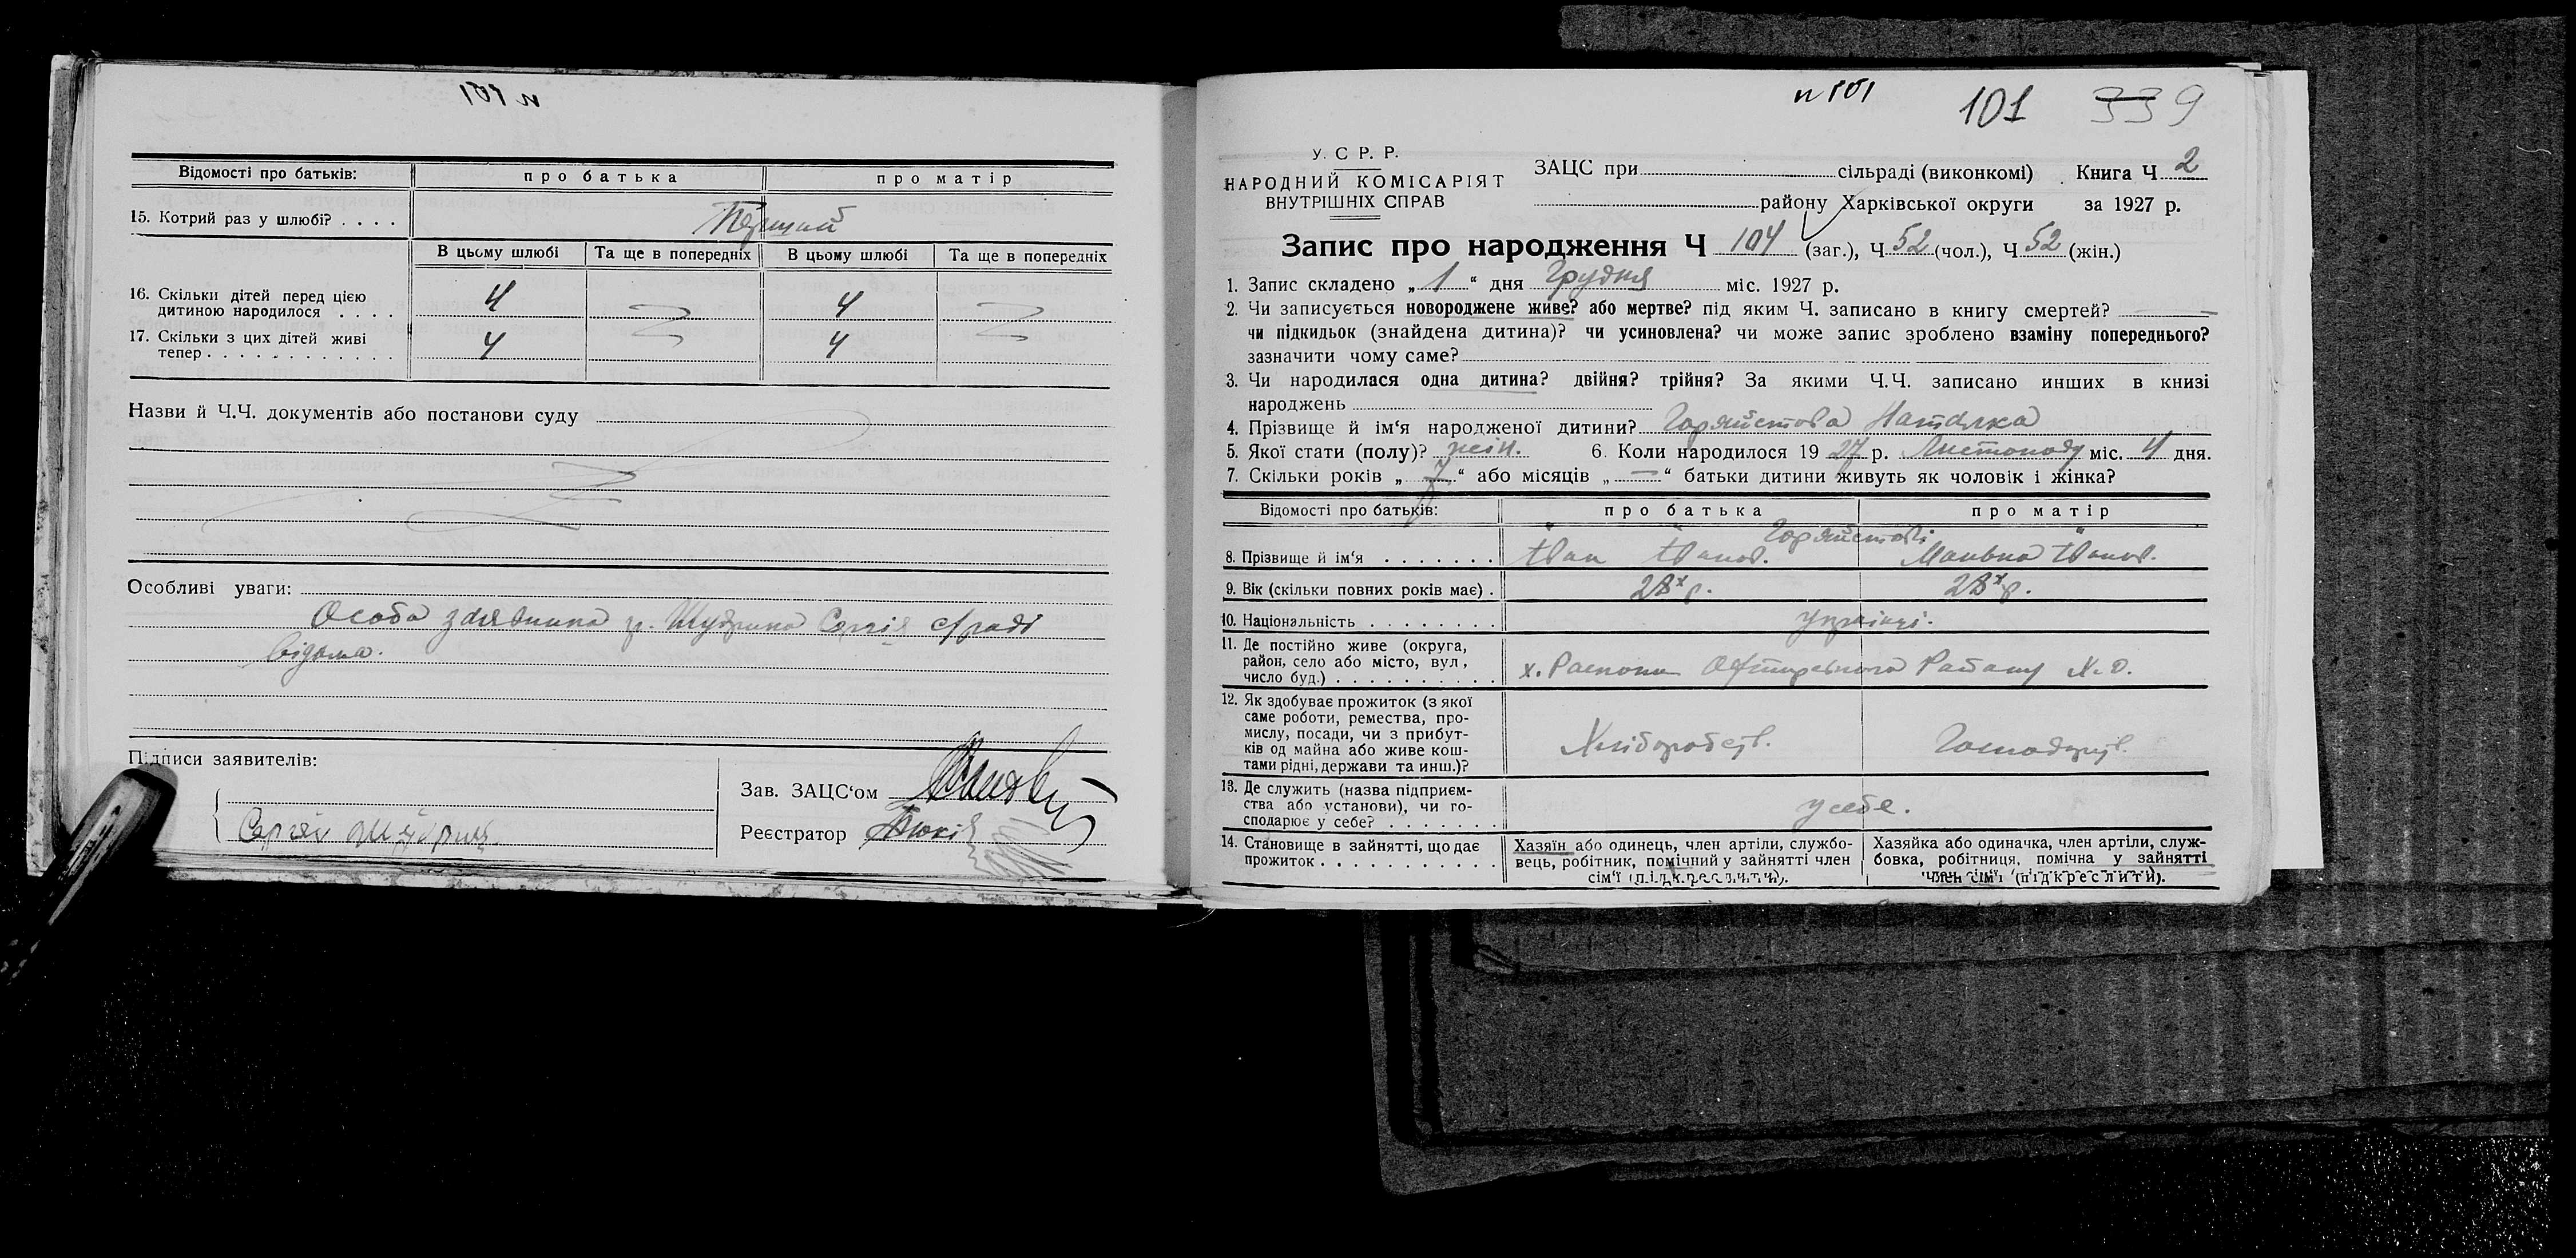 п 101
Відомості про батьків: про батька про матір
15. Котрий раз у шлюбі? . . . . Перший
В цьому шлюбі Та ще в попередніх В цьому шлюбі Та ще в попередніх
16. Скільки дітей перед цією
дитиною народилося . . . . 4 4
17. Скільки з цих дітей живі
тепер . . . . . . . . . . . . 4 4
Назви й Ч.Ч. документів або постанови суду
Особливі уваги:
Особа заявника гр. Шудрика Сергія с/раді
відома.
Підписи заявителів:
Сергій
Зав. ЗАЦС‘ом
Реєстратор
п 101 101 339
У. С. Р. Р.
НАРОДНИЙ КОМІСАРІЯТ
ВНУТРІШНІХ СПРАВ
ЗАЦС при сільраді (виконкомі) Книга Ч 2
району Харківської округи за 1927 р.
Запис про народження Ч 104 (заг.), Ч 52 (чол.), Ч 52 (жін.)
1. Запис складено „ 1 “ дня Грудня міс. 1927 р.
2. Чи записується новороджене живе? або мертве? під яким Ч. записано в книгу смертей? —
чи підкидьок (знайдена дитина)? чи усиновлена? чи може запис зроблено взаміну попереднього?
зазначити чому саме?
3. Чи народилася одна дитина? двійня? трійня? За якими Ч.Ч. записано инших в книзі
народжень
4. Прізвище й ім‘я народженої дитини? Горяйстова Наталка
5. Якої стати (полу)? жін. 6. Коли народилося 19 27 р. Листопаду міс. 4 дня.
7. Скільки років „ 7 “ або місяців „ — “ батьки дитини живуть як чоловік і жінка?
Відомості про батьків: про батька про матір
Горяйстові
8. Прізвище й ім‘я . . . . . . . Іван Іванов. Іванов.
9. Вік (скільки повних років має) . 28 р. 28 р.
10. Національність . . . . . . . . українці.
11. Де постійно живе (округа,
район, село або місто, вул.,
число буд.) . . . . . . . . . . х. Х. О.
12. Як здобуває прожиток (з якої
саме роботи, ремества, про-
мислу, посади, чи з прибут-
ків од майна або живе кош-
тами рідні, держави та инш.)? Хліборобств. Господарств.
13. Де служить (назва підприєм-
ства або установи), чи го-
сподарює у себе? . . . . . . . у себе.
14. Становище в зайнятті, що дає
прожиток . . . . . . . . . . .
Хазяїн або одинець, член артіли, службо-
вець, робітник, помічний у зайнятті член
сім‘ї (підкреслити).
Хазяйка або одиначка, член артіли, служ-
бовка, робітниця, помічна у зайнятті
член сім‘ї (підкреслити).